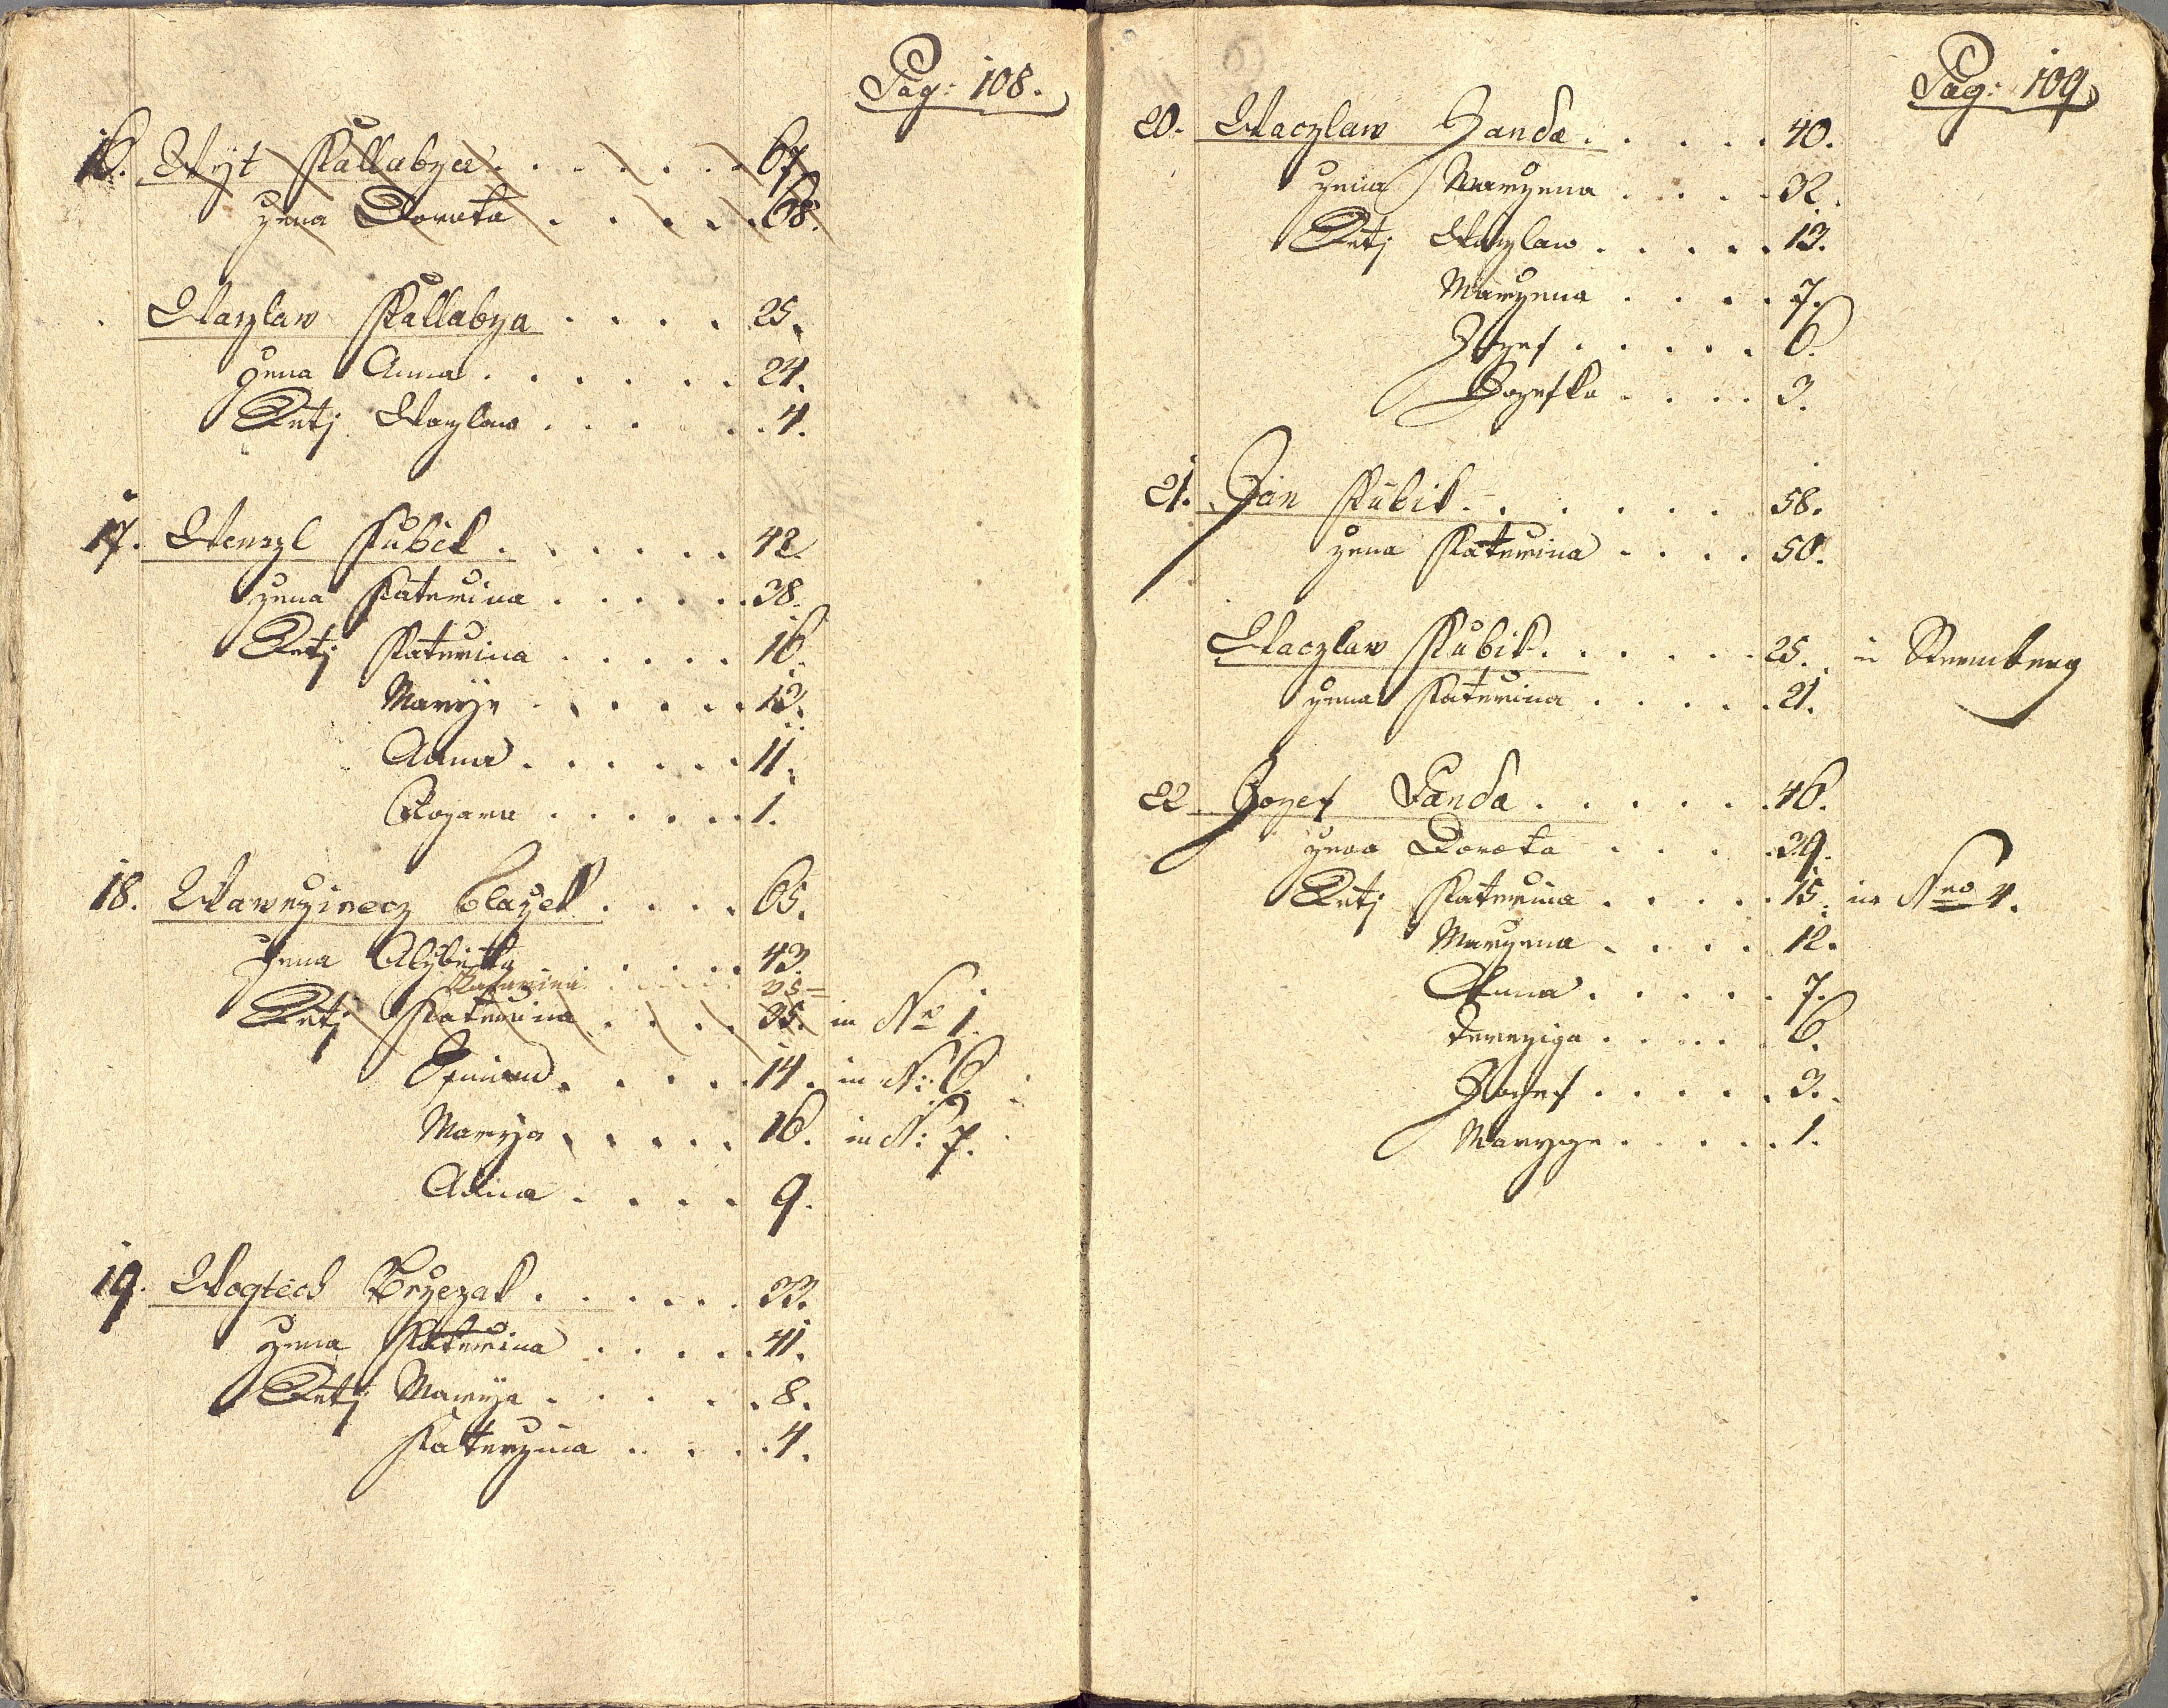 Pag: 108.
16. Wyt Kallabza . . . . . . 67
zena Dorota . . . . . 68.
Waczlaw Kallabza . . . . 25.
zena Anna . . . . . . 24.
Detj Waczlaw . . . . . 4.
17. Wenzl Kubik . . . . . . 42
zena Katerina . . . . . . 38.
Detj Katerina . . . . . 16.
Marye . . . . . 13.
Anna . . . . . . 11.
Rozara . . . . . . 1.
18. Wawrzinecz Blazek . . . . 65.
zena Alzbieta . . . . . 43.
Katarina . . . . . 35
Detj Katerina . . . . 35. in No 1.
. . . . . 14. in N: 6.
Marya . . . . . 16. in N: 7.
Anna . . . . 9.
19. Wogtech Brzezak . . . . . 33.
zena Katerina . . . . . 41.
Detj Marya . . . . . 8.
Katerzina . . . . 4.
Pag: 109.
20. Waczlaw Janda . . . . . 40.
zena Marzena . . . . 32.
Detj Waczlaw . . . . . 13.
Marzena . . . . 7.
Jozef . . . . . 6.
Jozefka . . . . 3.
21. Jan Kubik . . . . . . 58.
zena Katerina . . . . 50.
Waczlaw Kubik . . . . . . 25. in Sternberg
zena Katerina . . . . . 21.
22. Jozef Janda . . . . . 46.
zena Dorota . . . . 39.
Detj Katerzina . . . . . 15. in Nro 4.
Marzena . . . . 12.
Anna . . . . . 7.
Terezia . . . . . 6.
Jozef . . . . . 3.
Marzye . . . . . 1.